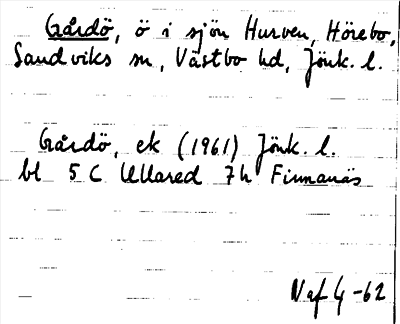 Gårdö, ö i sjön Hurven, Hörebo,
Sandviks sn, Västbo hd, Jönk. l.
Gårdö, ek (1961) Jönk. l.
bl 5 C Ullared 7h Finnanäs
N af G -62